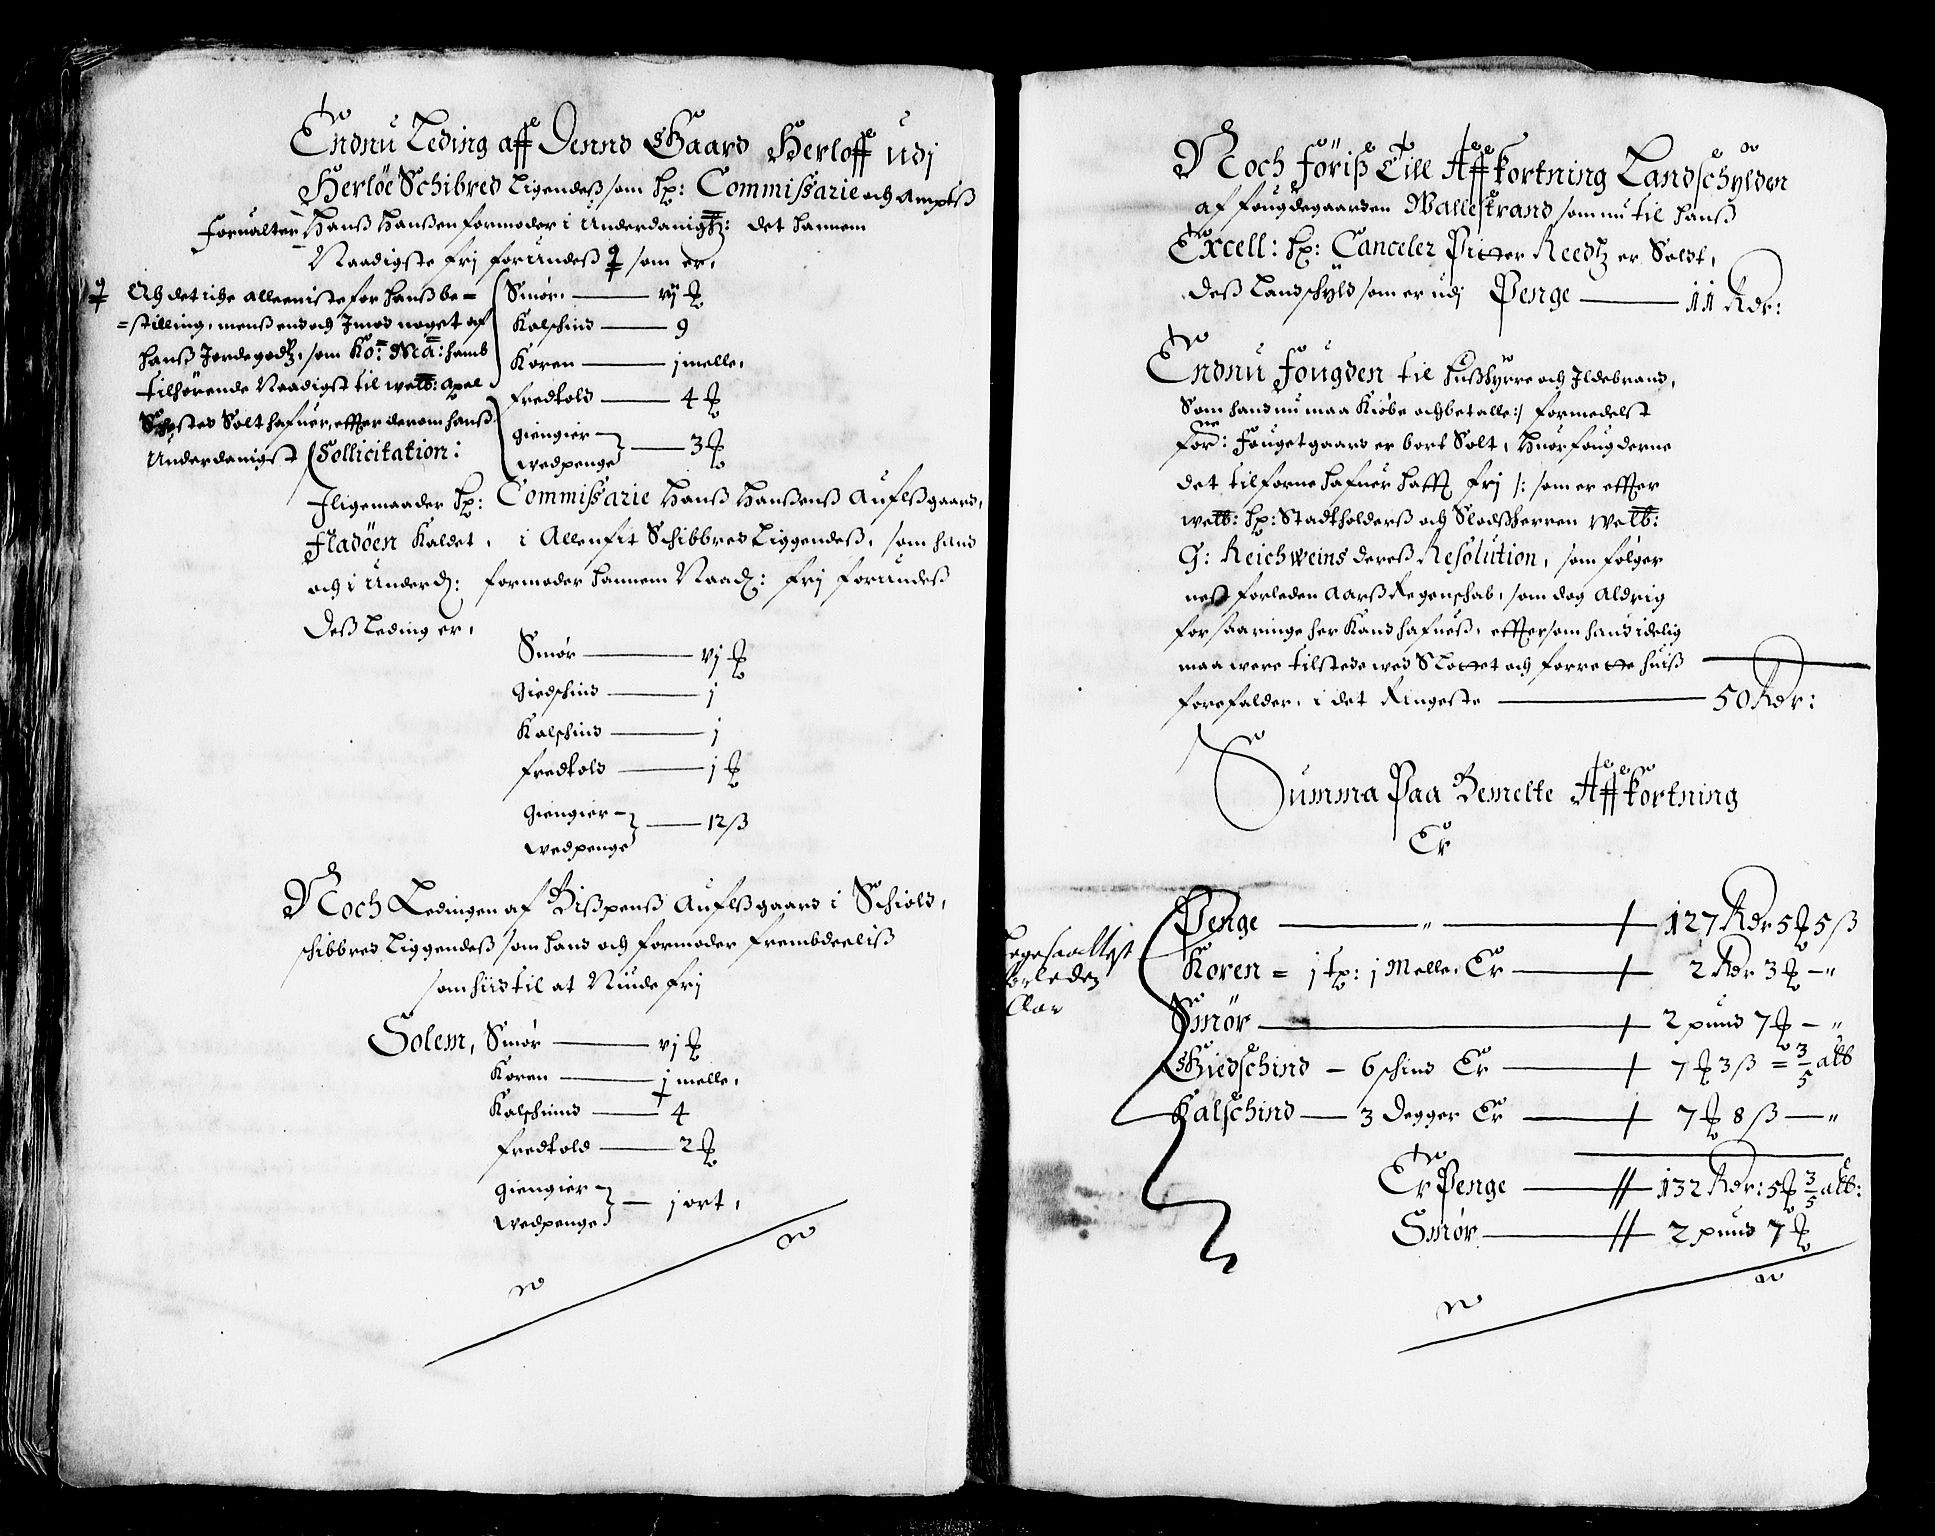 Endnu Leding aff Denne Gaard Herloff udj
Herlöe Schibred Ligendeß som Hr: Commißarie och Ampts
Forualter Hanß Hanßen formoder i Underdanigh: det hannem
Naadigste frj forundeß ♀ som er,
♀ Och det iche alleeniste for hanß be=
=stilling, menß endoch Imod noget af
hanß Jordegodtz, som Ko: Ma: hamb
tilhörende Naadigst til welb: Axel
Sehsted Solt hafuer, effter derom hanß
Underdanigst Sollicitation:
Smör, — vij ℔
Kalschind — 9
Koren — j melle,
Fredtold — 4 ℔
Giengier
wedpenge — 3 ℔
Iligemaader Hr: Commißarie Hanß Hanßenß Aufleßgaard,
Fladöen Kaldet, i Allenfit Schibbred Liggendeß, som hand
och i Underd: formoder hannem Naad: frj forundeß
Deß Leding er,
Smör — vj ℔
Giedschind — j
Kalschind — j
Fredtold — j ℔
Giengier
wedpenge — 12 ß
Noch Ledingen af Bispenß Aufleßgaard i Schiold,
schibbred Liggendeß som hand och formoder frembdeeliß
som hidtil at Niude frj
Solem, Smör — vj ℔
Koren — j melle,
Kalschind — 4
Fredtold — 2 ℔
Giengier
wedpenge — j ort,
Noch föriß Till Affkortning Landschylden
af fougdegaarden Wallestrand som nu til Hanß
Excell: Hr: Canceler Pitter Reedtz er Soldt,
Deß Landschyld som er udj Penge — 11 Rdr:
Endnu Fougden til Hußhyrre och Ildebrand,
Som hand nu maa Kiöbe och betalle :/ formedelst
for:ne Fouget gaard er bort Solt, Huor fougderne
det tilforne hafuer hafft frj /: som er effter
welb: Hr: Stadtholderß och Slodßherren welb:
G: Reichweins dereß Resolution, som fölger
nest forleden Aarß Regenschab, som dog Aldrig
forsaaringe her Kand hafueß, efftersom hand idelig
maa were tilstede wed Slottet och forrette huiß
forefalder, i det Ringeste — 50 Rdr:
Summa Paa Bemelte Affkortning
Er
Penge — 127 Rdr 5 ℔ 5 ß
forleden
Aar
Koren = j tr: j Melle, Er — 2 Rdr 3 ℔ — "
Smör — 2 pund 7 ℔ — "
Giedschind — 6 schind Er — 7 ℔ 3 ß = 3/5 alb
Kalschind — 3 Degger Er — 7 ℔ 8 ß — "
Er Penge — 132 Rdr: 5 ℔ 3/5 alb:
Smör — 2 pund 7 ℔